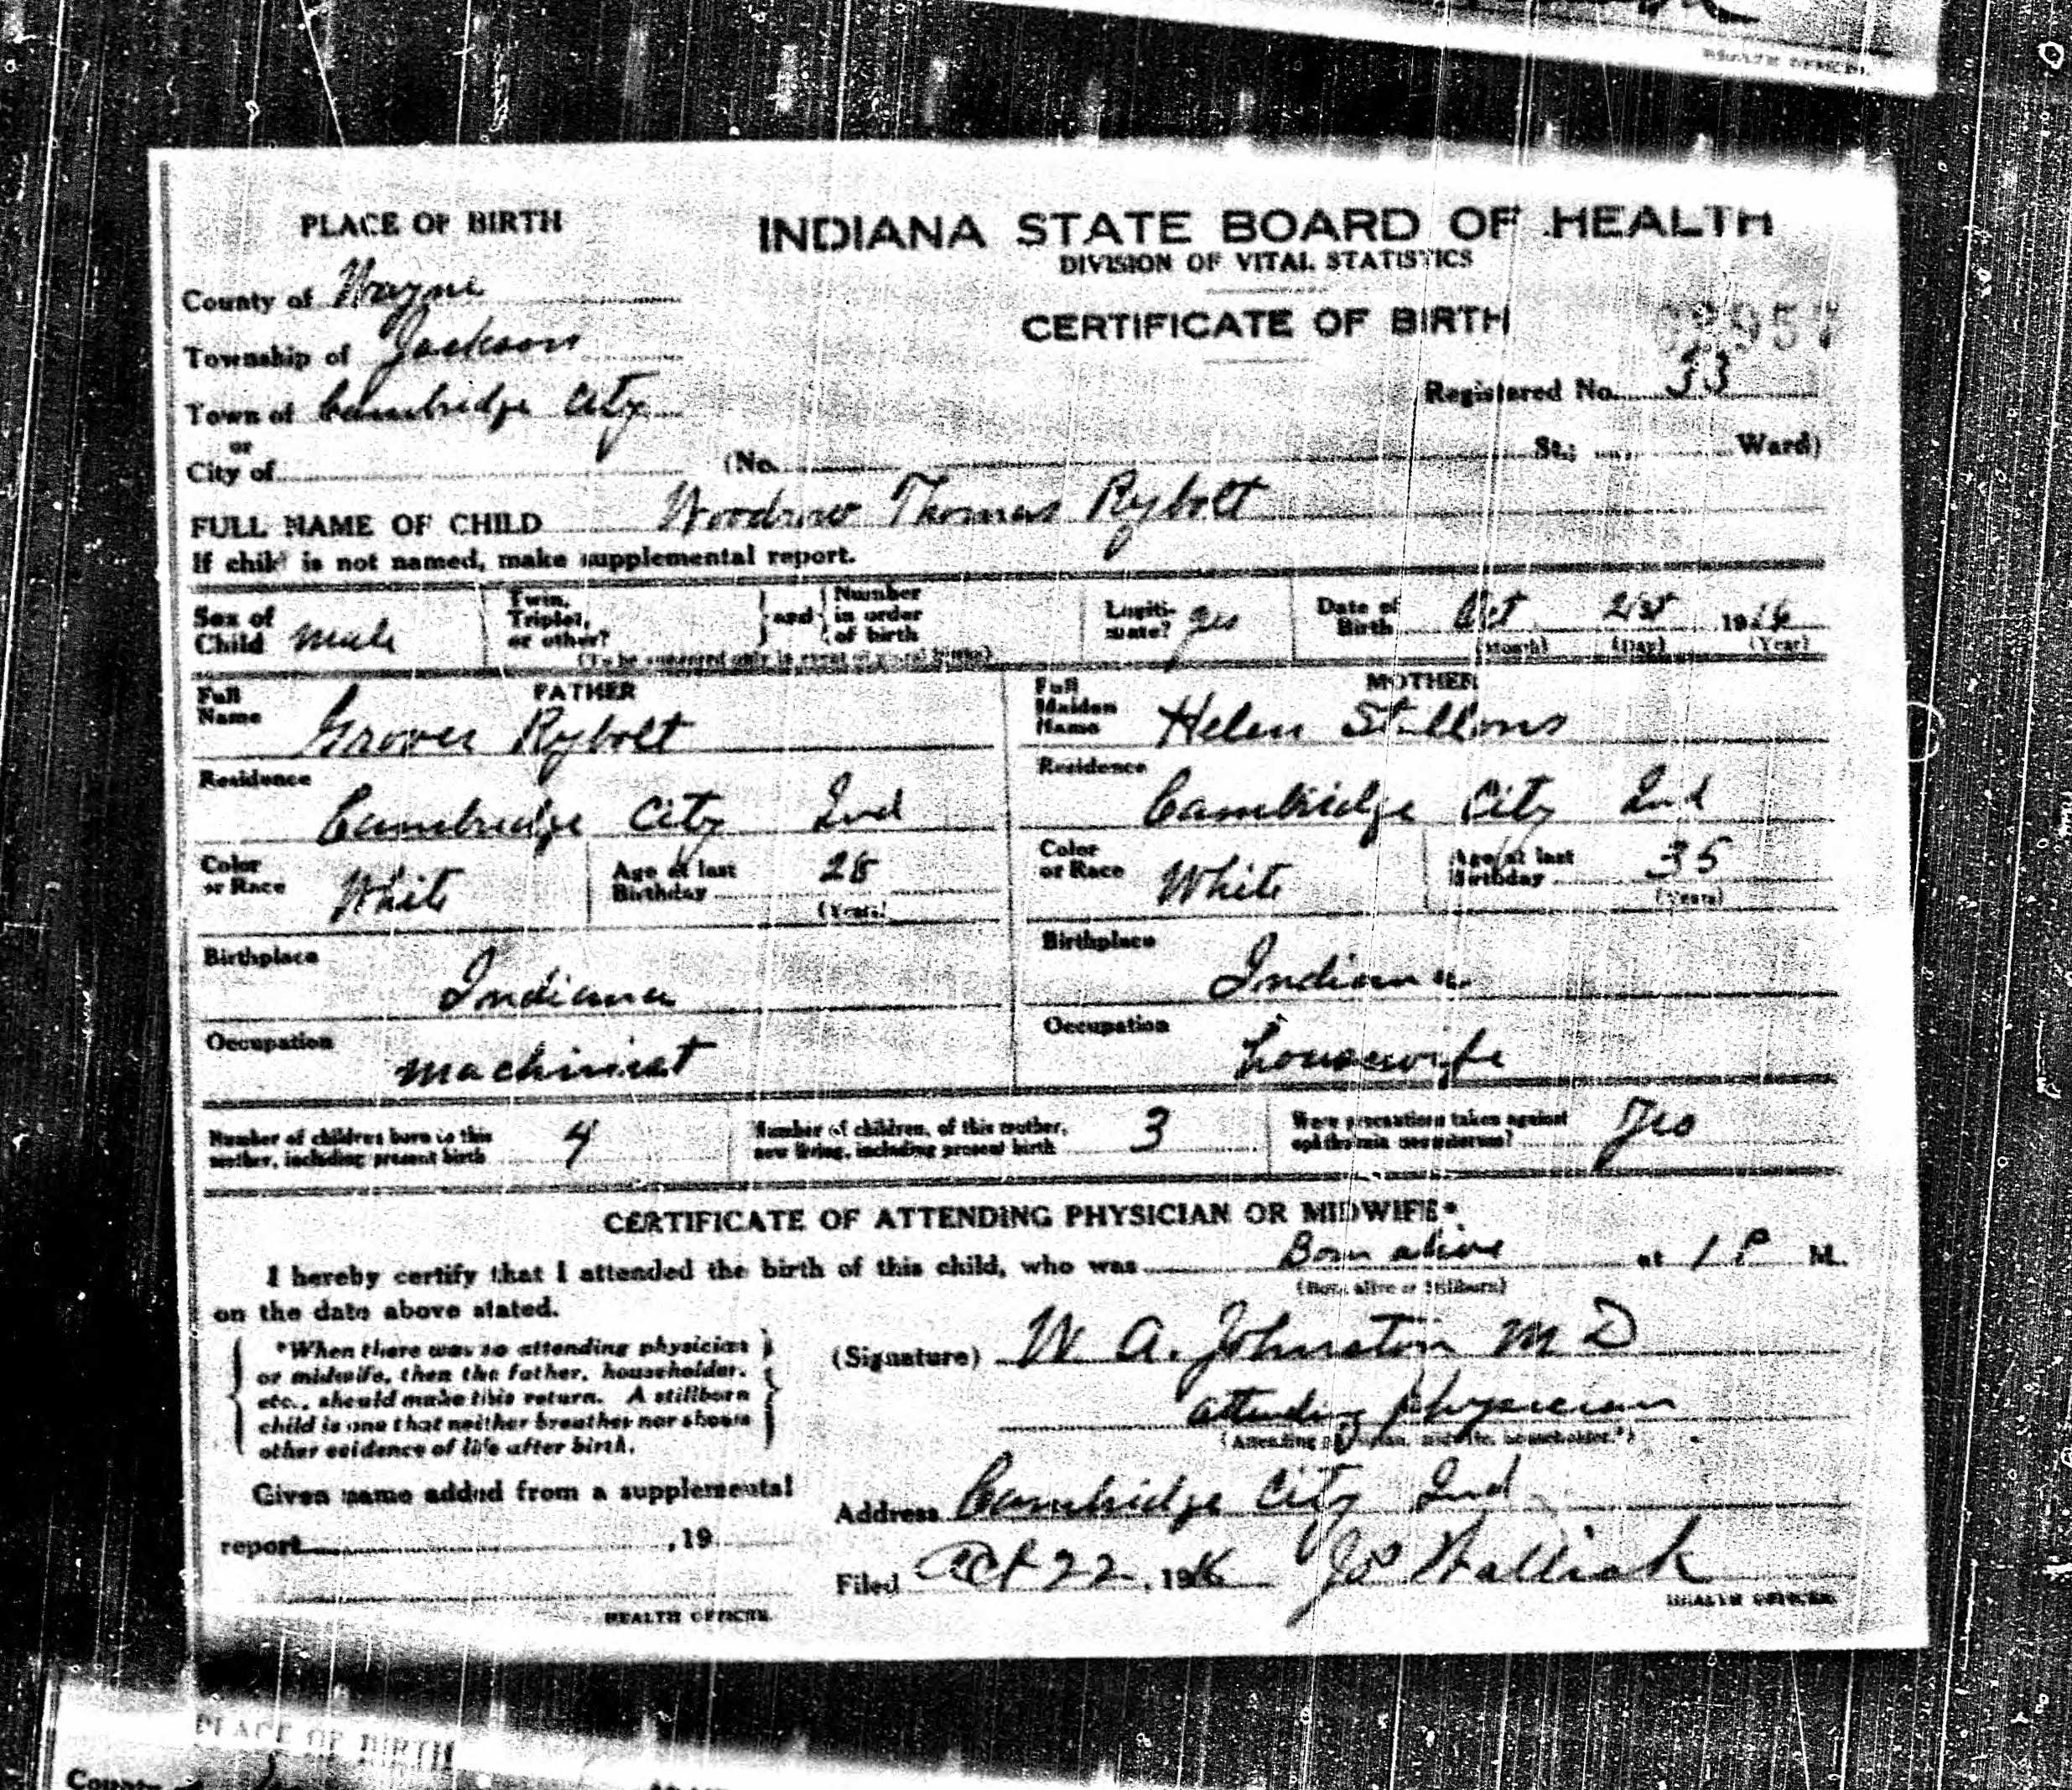 HEALTH OFFICER.
PLACE OF BIRTH
INDIANA STATE BOARD OF HEALTH
DIVISION OF VITAL STATISTICS
CERTIFICATE OF BIRTH
County of Wayne
Township of Jackson
Town of Cambridge City
or
City of
Registered No. 33
(No. St.; Ward)
FULL NAME OF CHILD Woodrow Thomas Rybolt
If child is not named, make supplemental report.
Sex of Child male
Twin, Triplet, or other?
and
Number in order of birth
(To be answered only in event of plural births)
Legitimate? yes
Date of Birth Oct 21st 1916
(Month) (Day) (Year)
FATHER
Full Name Grover Rybolt
MOTHER
Full Maiden Name Helen Stallons
Residence Cambridge City Ind
Residence Cambridge City Ind
Color or Race White
Age at last Birthday 28
(Years)
Color or Race White
Age at last Birthday 35
(Years)
Birthplace Indiana
Birthplace Indiana
Occupation machinist
Occupation housewife
Number of children born to this mother, including present birth 4
Number of children, of this mother, now living, including present birth 3
Were precautions taken against ophthalmia neonatorum? Yes
CERTIFICATE OF ATTENDING PHYSICIAN OR MIDWIFE*
I hereby certify that I attended the birth of this child, who was Born alive at 1 P M.
(Born alive or Stillborn)
on the date above stated.
*When there was no attending physician
or midwife, then the father, householder,
etc., should make this return. A stillborn
child is one that neither breathes nor shows
other evidence of life after birth.
(Signature) W A. Johnston M D
attending physician
(Attending physician, midwife, householder.*)
Given name added from a supplemental
report , 19
HEALTH OFFICER.
Address Cambridge City Ind
Filed Oct 22, 1916
HEALTH OFFICER.
PLACE OF BIRTH
County